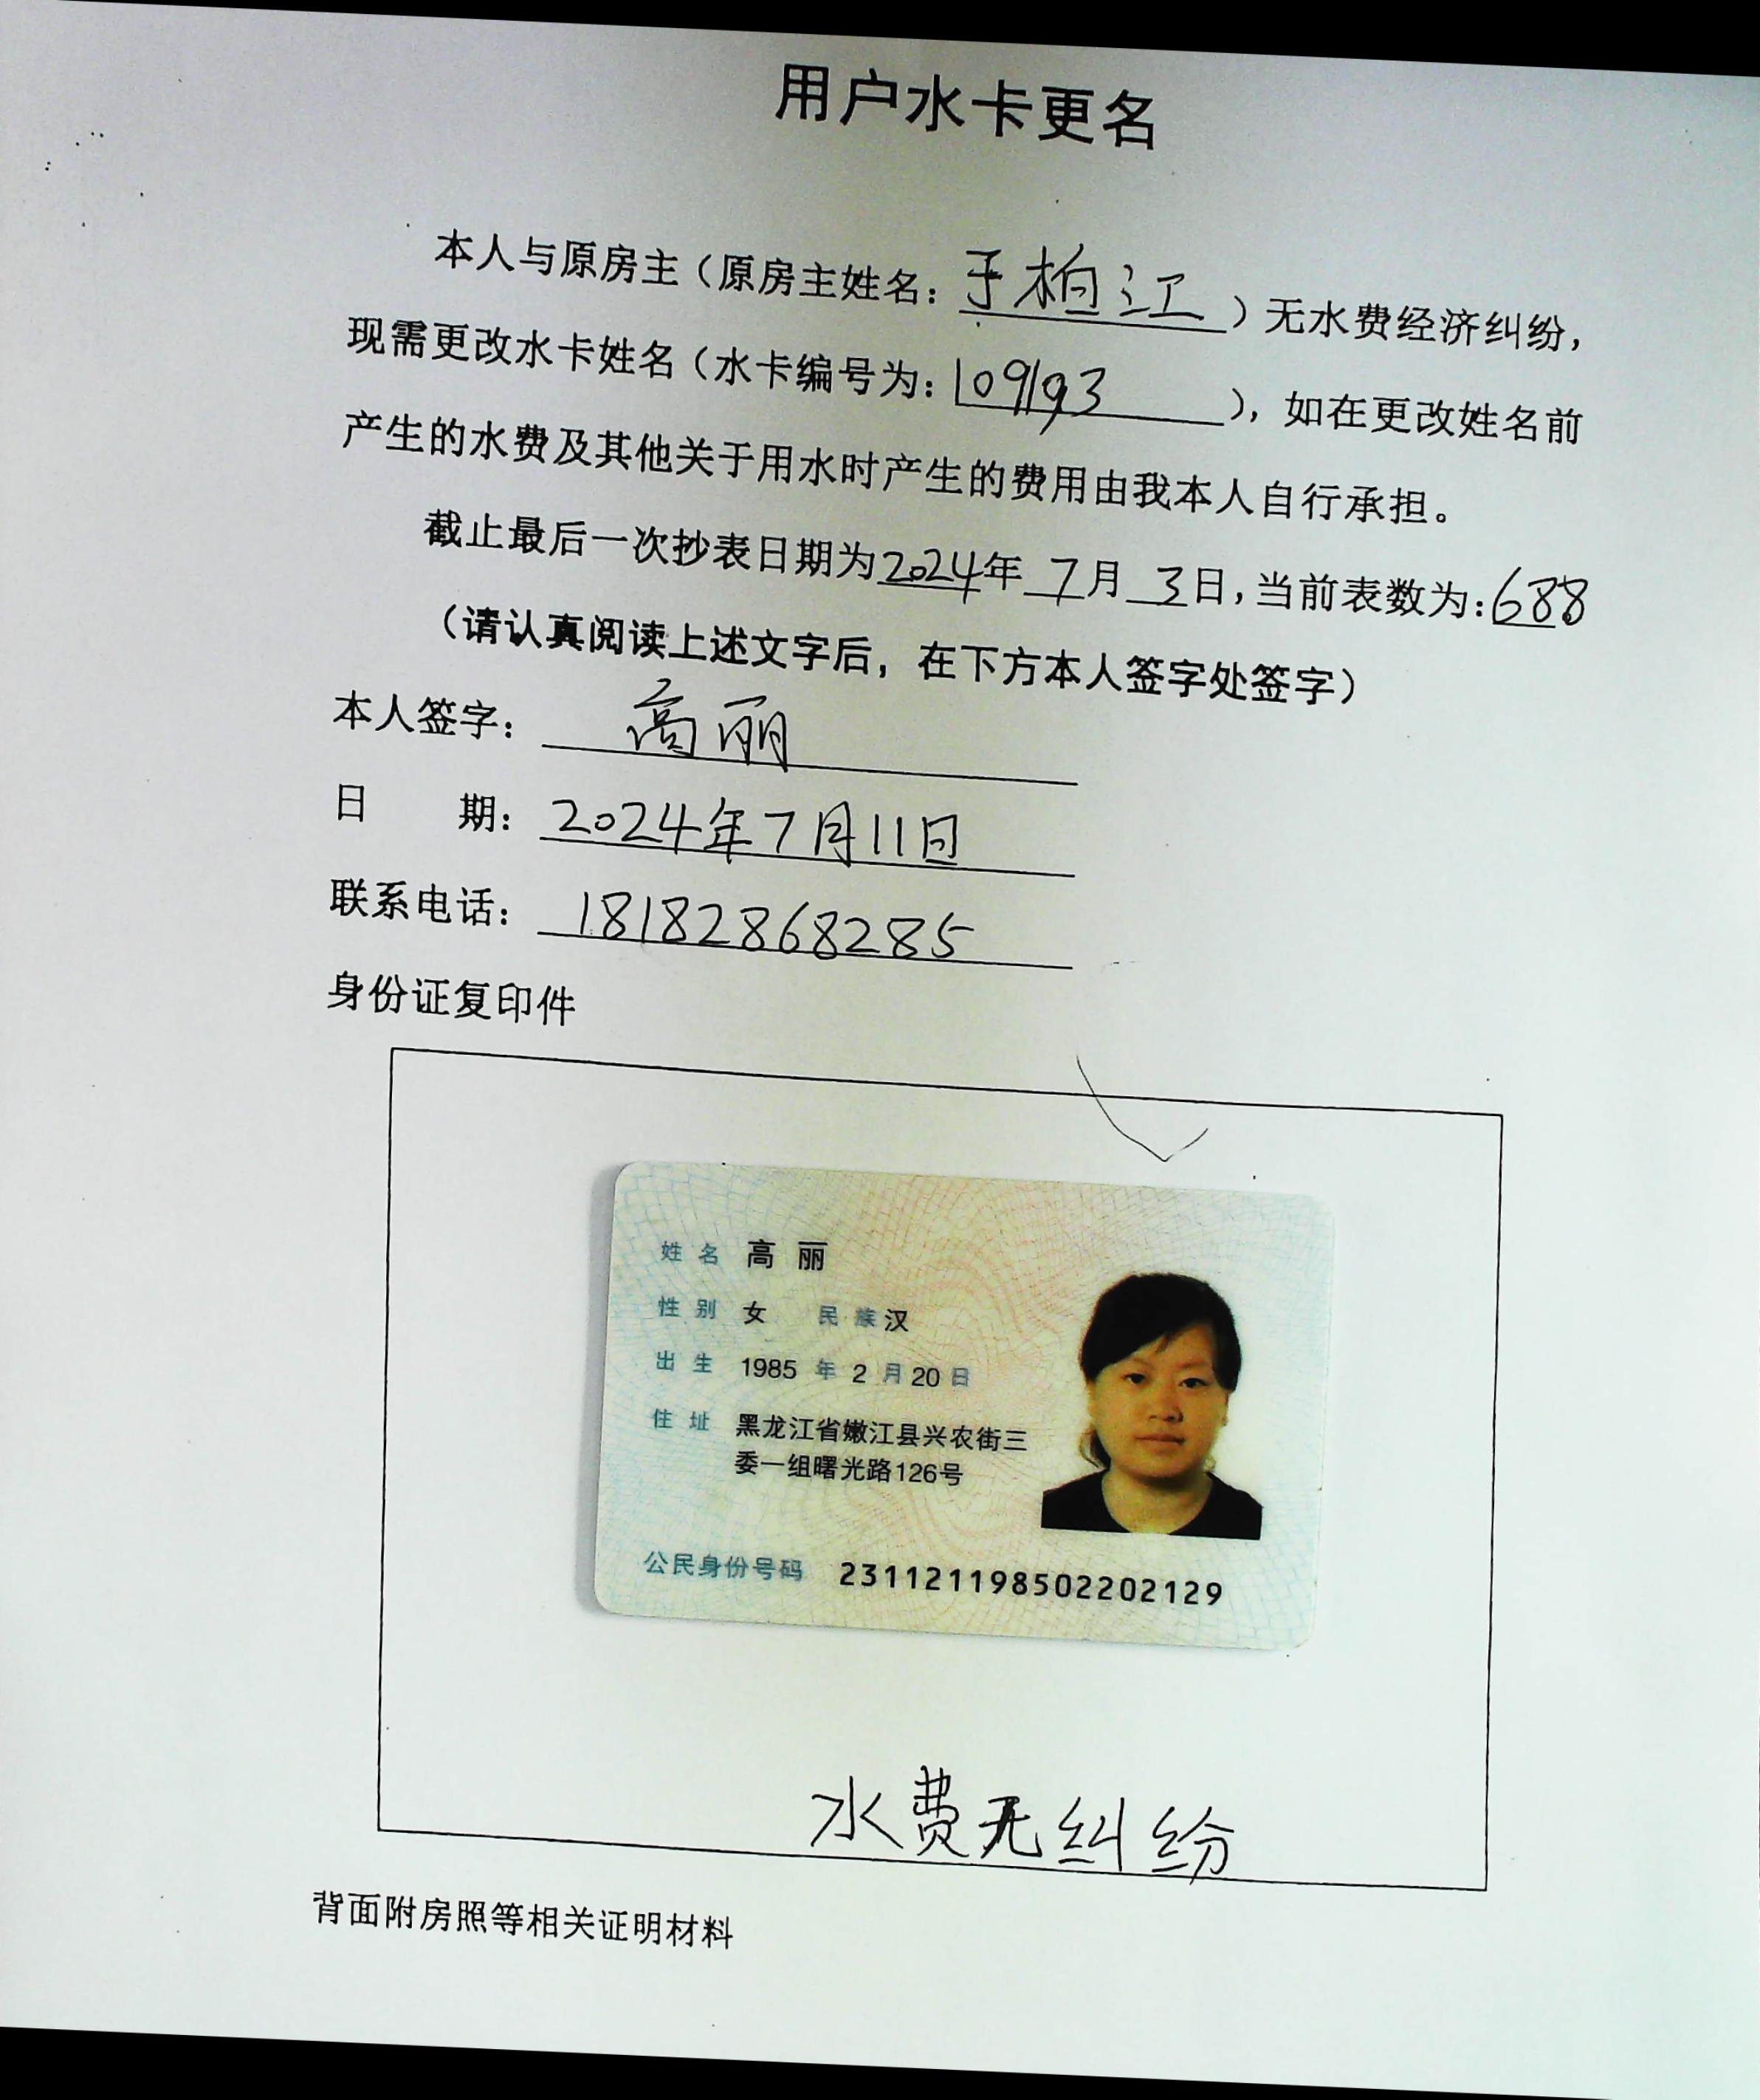 用户水卡更名
本人与原房主（原房主姓名：于柏江）无水费经济纠纷，
现需更改水卡姓名（水卡编号为：109193），如在更改姓名前
产生的水费及其他关于用水时产生的费用由我本人自行承担。
截止最后一次抄表日期为2024年7月3日，当前表数为：688
（请认真阅读上述文字后，在下方本人签字处签字）
本人签字：高丽
日 期：2024年7月11日
联系电话：18182868285
身份证复印件
姓名 高丽
性别 女 民族 汉
出生 1985年2月20日
住址 黑龙江省嫩江县兴农街三
委一组曙光路126号
公民身份号码 231121198502202129
水费无纠纷
背面附房照等相关证明材料